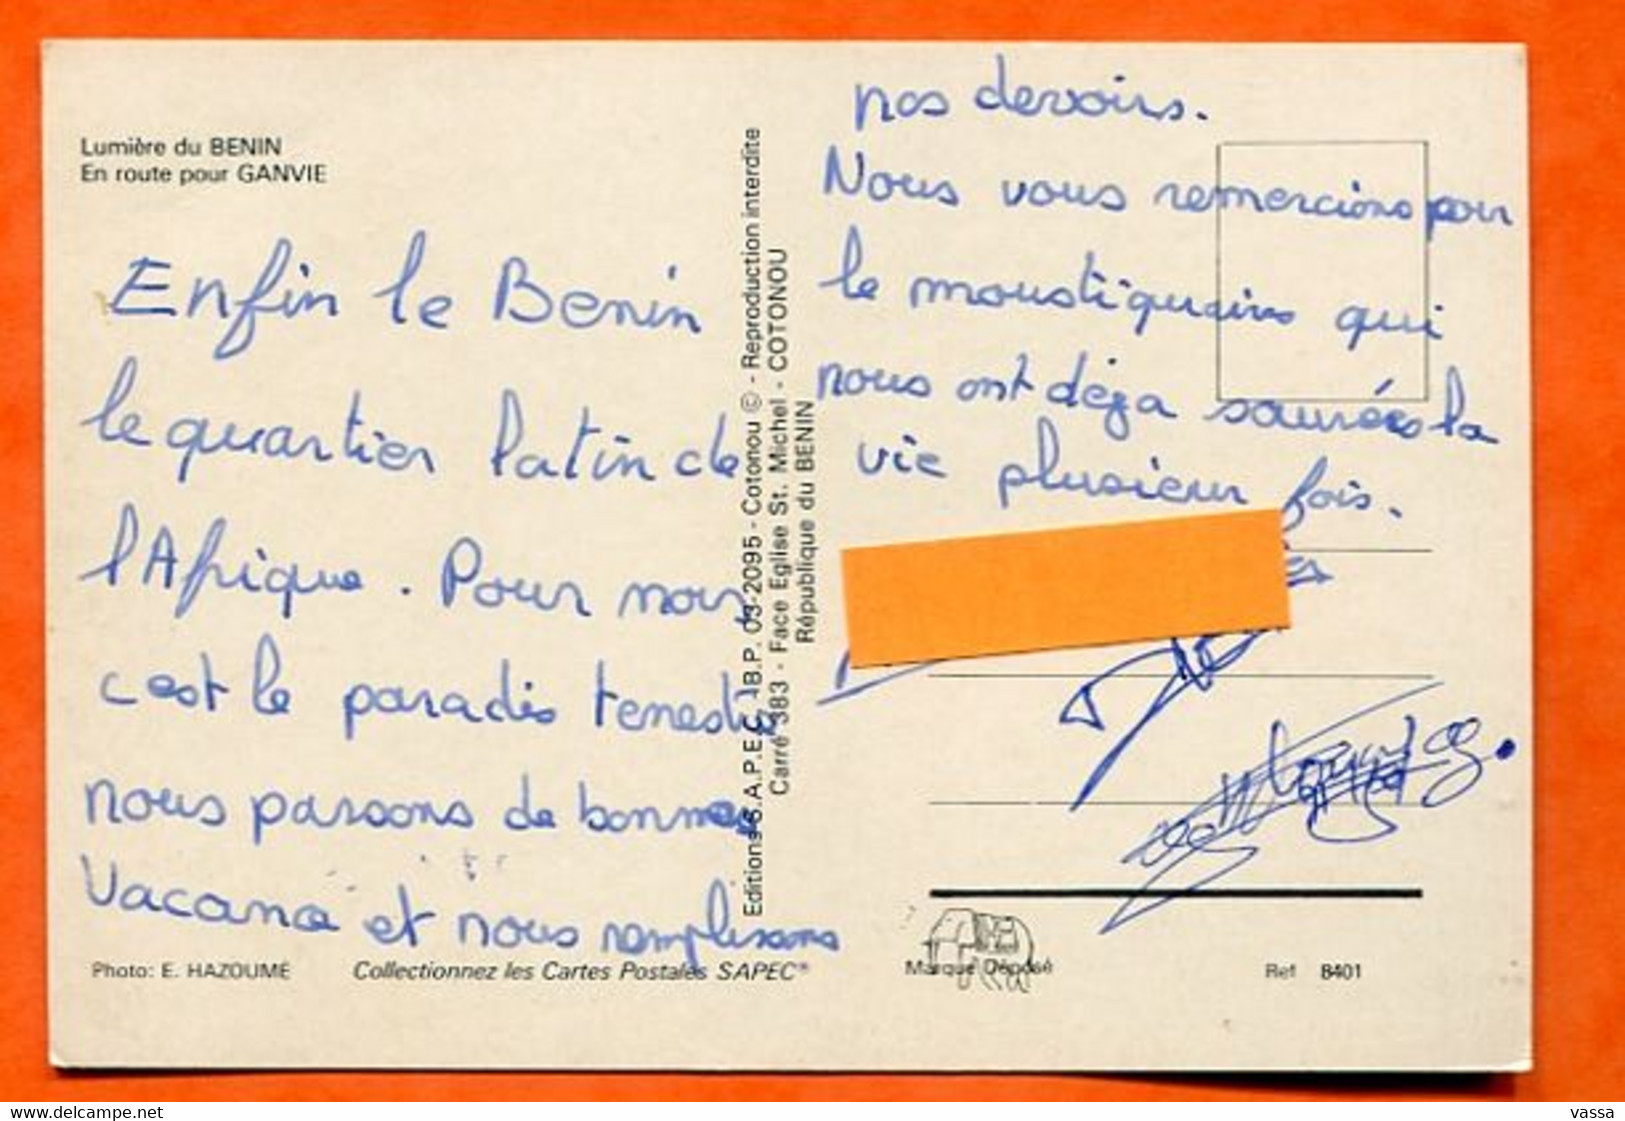 Lumière du BENIN
En route pour GANVIE
Enfin le Benin
le quartier latin de
l'Afrique. Pour nous
c'est le paradis terrestre
nous passons de bonnes
Vacance et nous remplissons
Photo: E. HAZOUMÉ
Collectionnez les Cartes Postales SAPEC®
Editions S.A.P.E.C. B.P. 03-2095 - Cotonou © - Reproduction interdite
Carré 383 - Face Eglise St. Michel - COTONOU
République du BENIN
nos devoirs.
Nous vous remercions pour
le moustiquaire qui
nous ont déja sauvées la
vie plusieur fois.
Marque Déposé
Ref 8401
www.delcampe.net
vassa